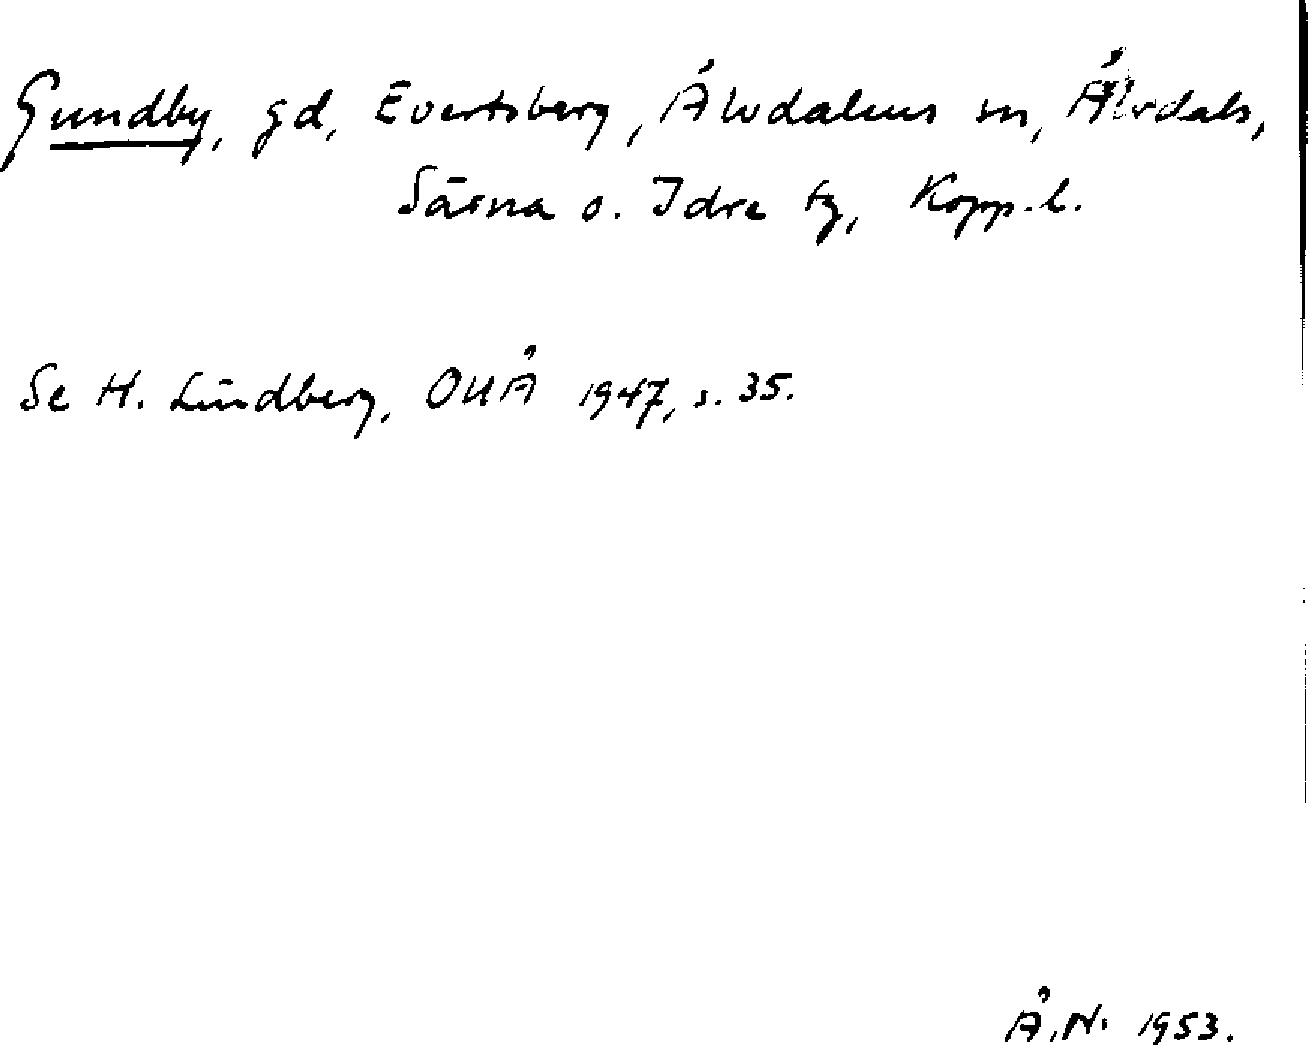 Gundby, gd, Evertsberg, Älvdalens sn, Älvdals,
Särna o. Idre tg, Kopp. l.
Se H. Lindberg, OUÅ 1947, s. 35.
Å. N. 1953.